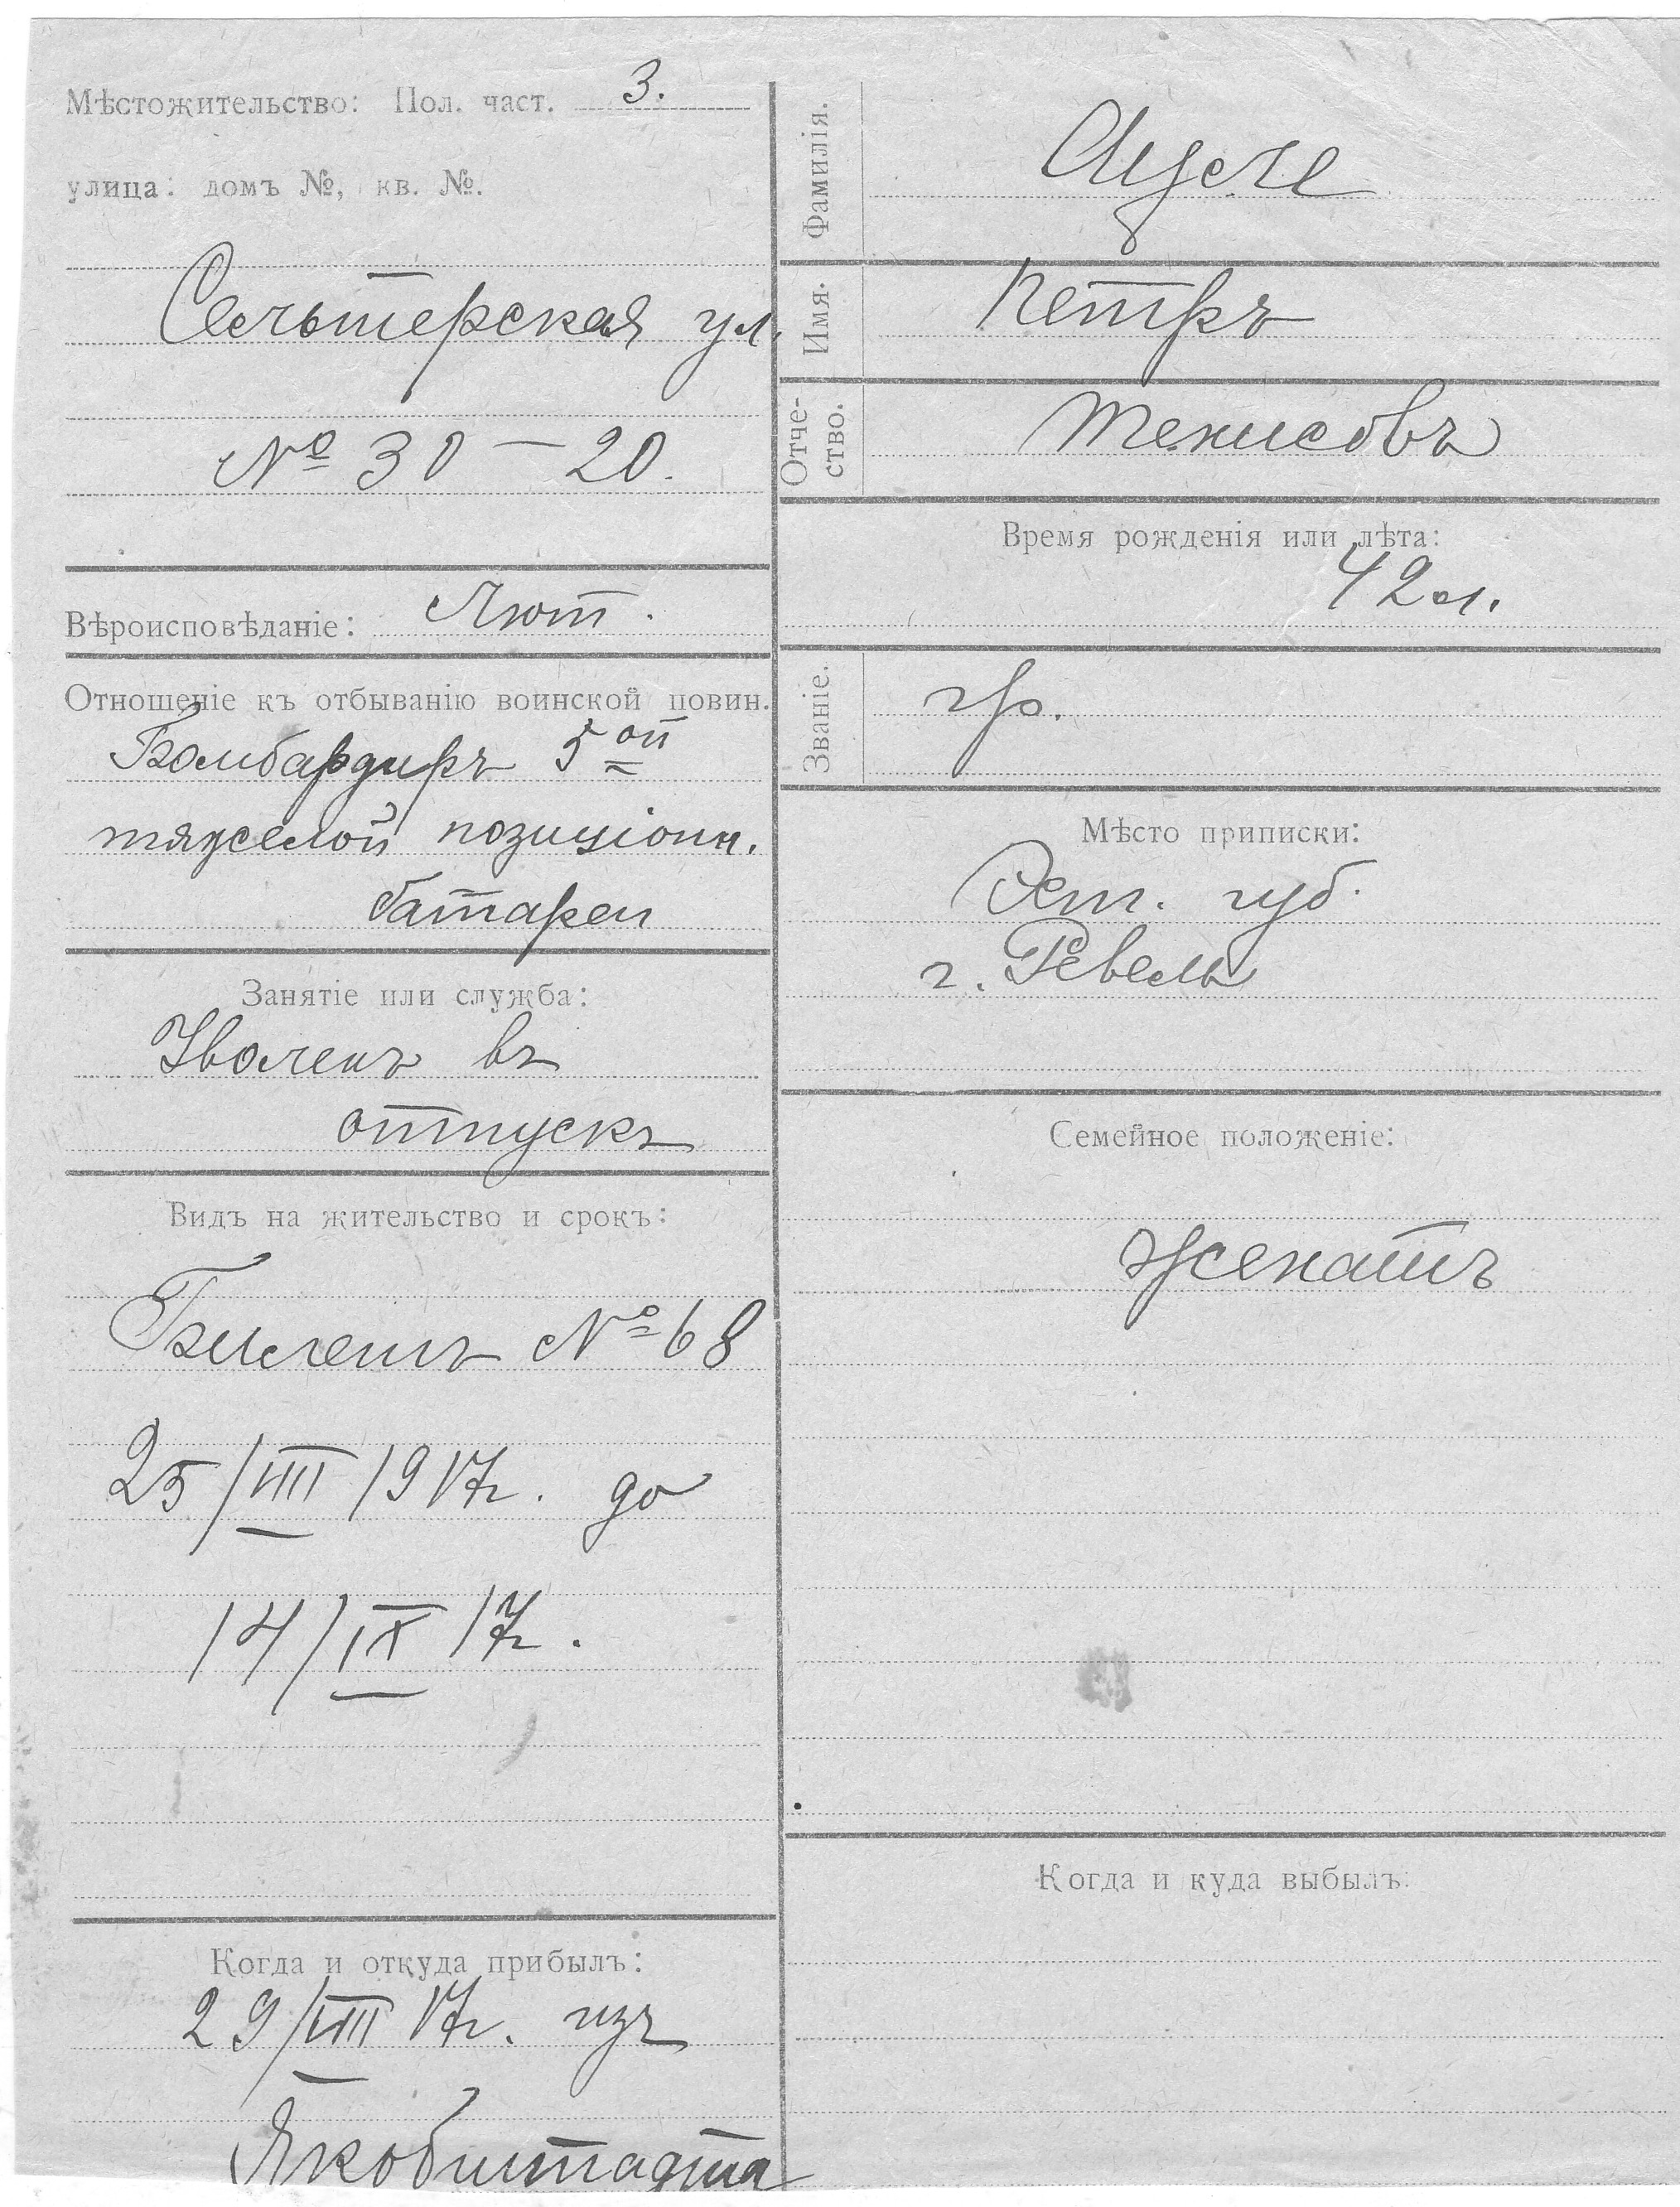 Мѣстожительство: Пол. част. 3.
улица: домъ №, кв. №.
ул.
№ 30 – 20.
Вѣроисповѣданіе: Лют.
Отношеніе къ отбыванію воинской повин.
Бомбардиръ 5ой
тяжелой позиціонн.
батареи
Занятіе или служба:
Уволенъ въ
отпускъ
Видъ на жительство и срокъ:
Билетъ № 68
25/VIII 1917г. до
14/IX 17г.
Когда и откуда прибылъ:
29/VIII 17г. изъ
Якобштадта
Фамилія.
Имя. Петръ
Отче-
ство. Тенисовъ
Время рожденія или лѣта:
42 л.
Званіе. гр.
Мѣсто приписки:
Эст. губ.
г. Ревель
Семейное положеніе:
женатъ
Когда и куда выбылъ: